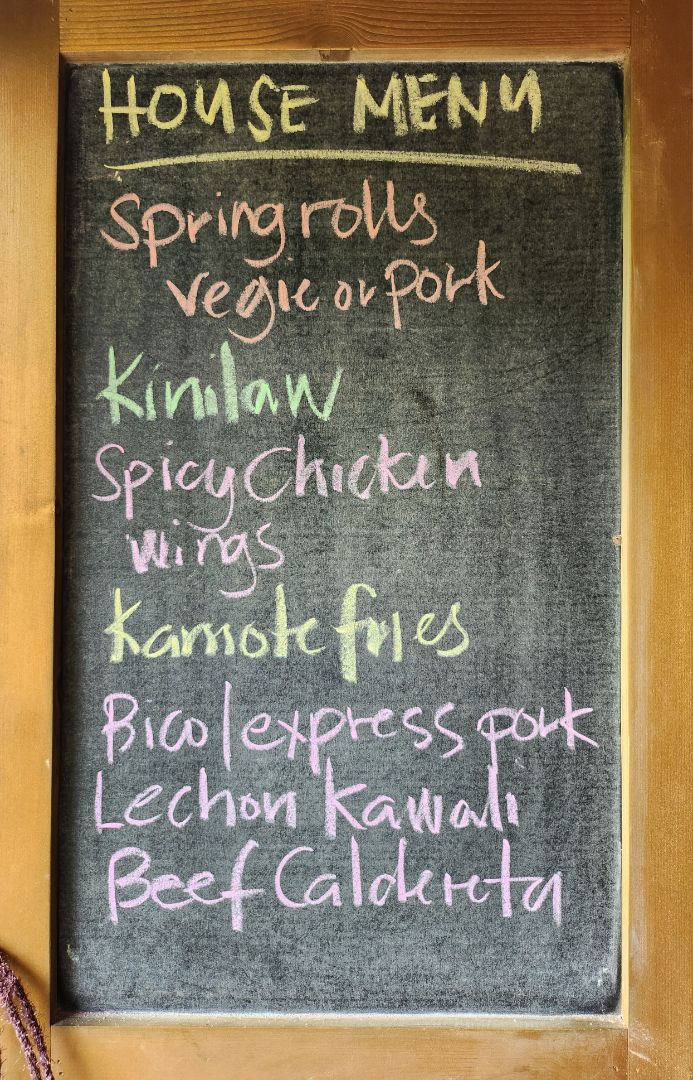 HOUSE MENU
Spring rolls
vegie or pork
Kinilaw
Spicy Chicken
wings
Kamote fries
Bicol express pork
Lechon Kawali
Beef Caldereta